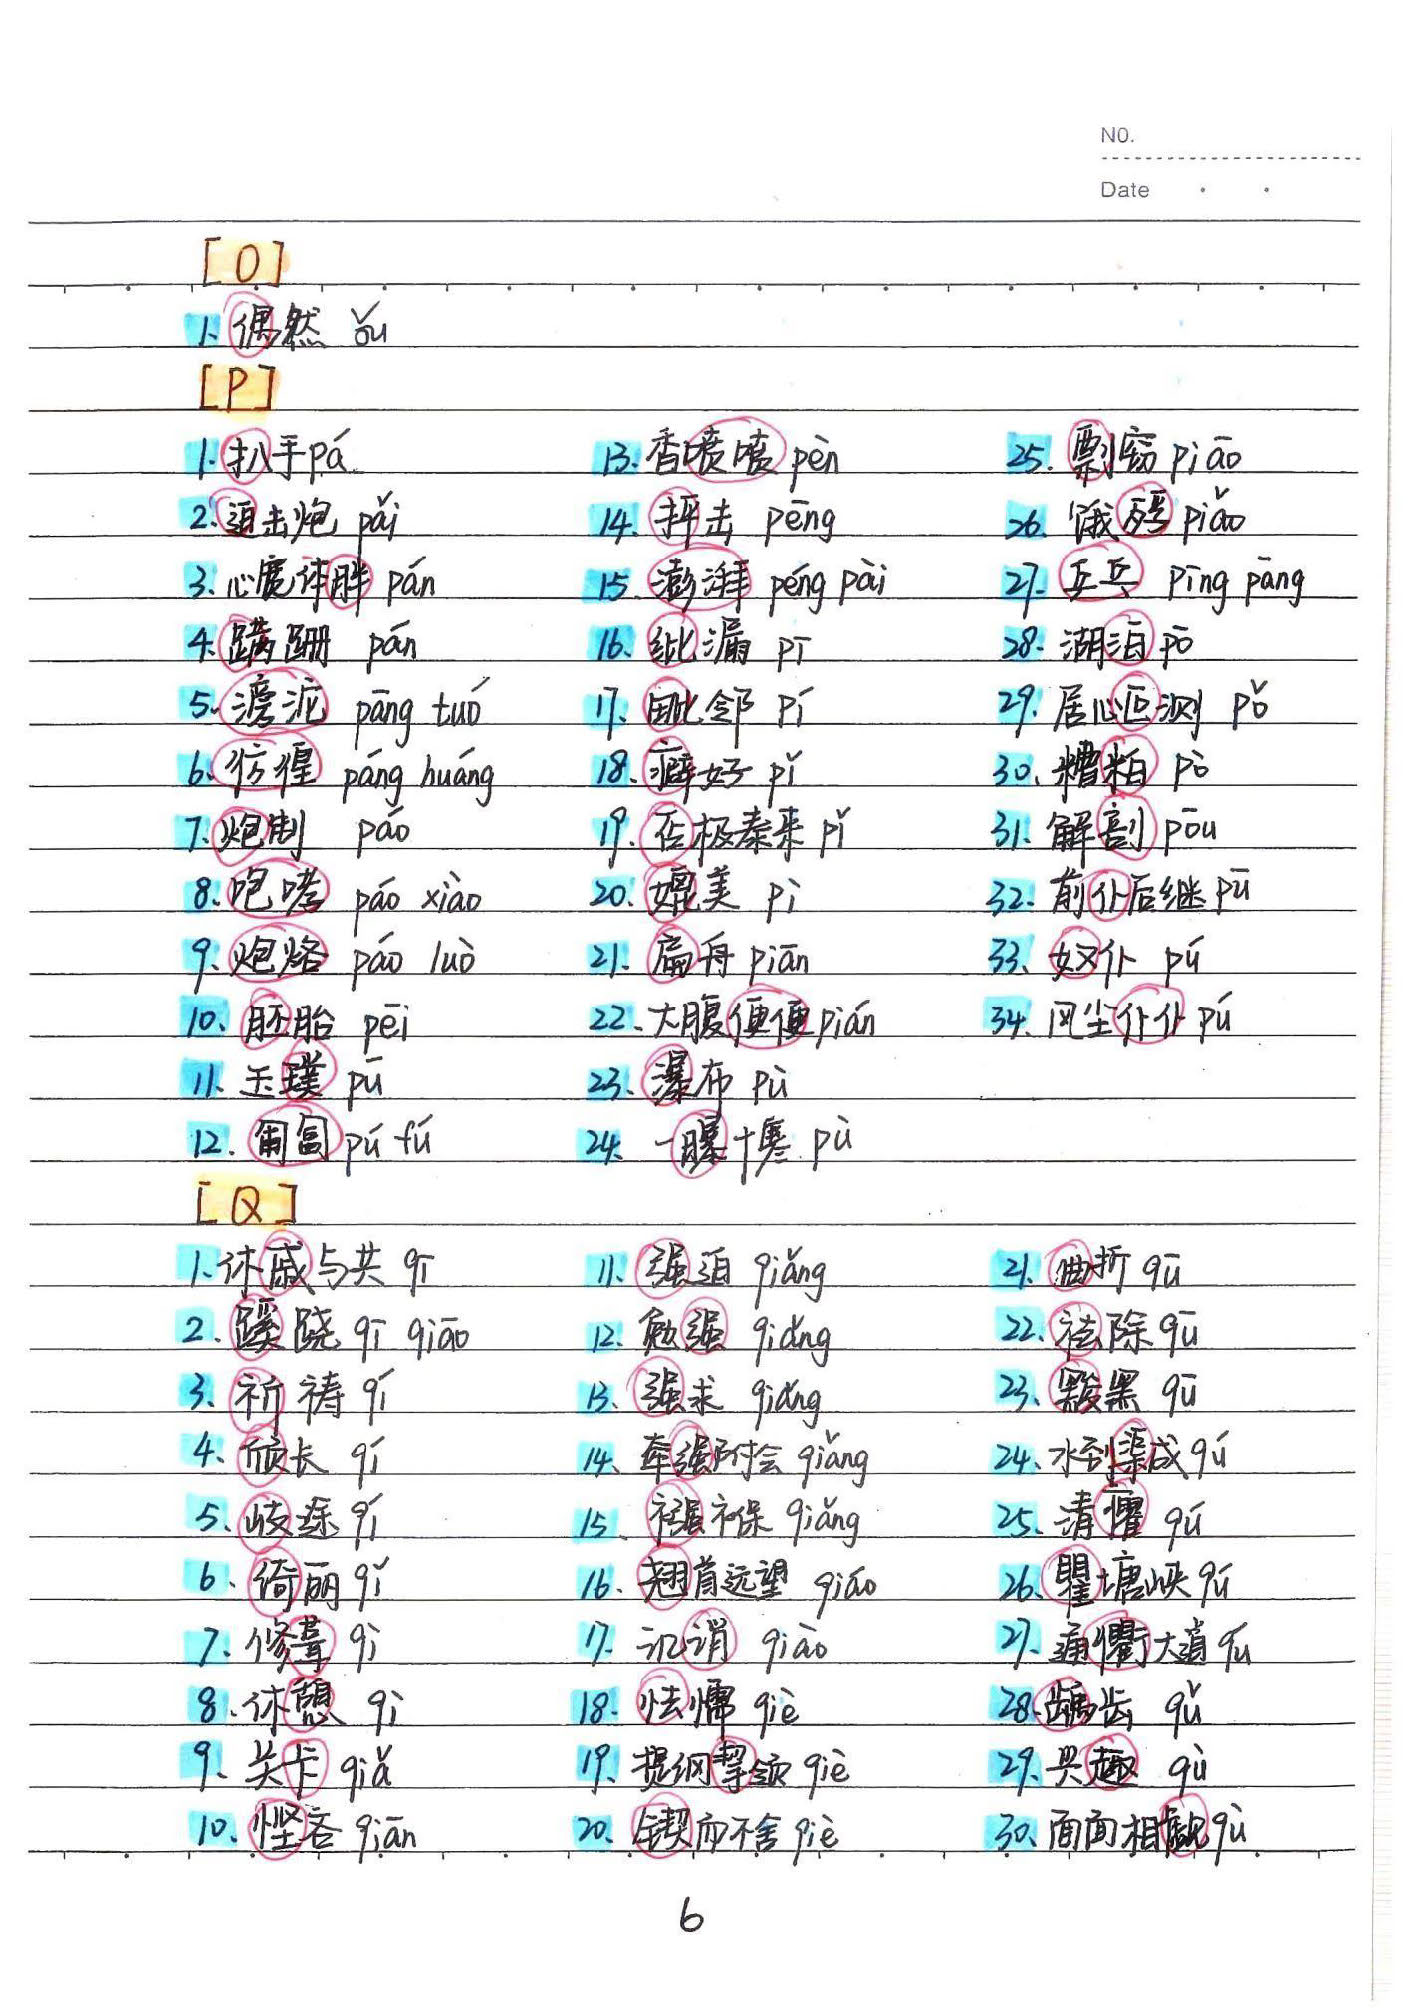 NO.
Date
[O]
1. 偶然 ǒu
[P]
1. 扒手 pá
2. 迫击炮 pǎi
3. 心宽体胖 pán
4. 蹒跚 pán
5. 滂沱 pāng tuó
6. 彷徨 páng huáng
7. 炮制 páo
8. 咆哮 páo xiào
9. 炮烙 páo luò
10. 胚胎 pēi
11. 玉璞 pú
12. 匍匐 pú fú
13. 香喷喷 pèn
14. 抨击 pēng
15. 澎湃 péng pài
16. 纰漏 pī
17. 毗邻 pí
18. 癖好 pǐ
19. 否极泰来 pǐ
20. 媲美 pì
21. 扁舟 piān
22. 大腹便便 pián
23. 瀑布 pù
24. 一曝十寒 pù
25. 剽窃 piāo
26. 饿殍 piǎo
27. 乒乓 pīng pāng
28. 湖泊 pō
29. 居心叵测 pǒ
30. 糟粕 pò
31. 解剖 pōu
32. 前仆后继 pū
33. 奴仆 pú
34. 风尘仆仆 pú
[Q]
1. 休戚与共 qī
2. 蹊跷 qī qiāo
3. 祈祷 qí
4. 颀长 qí
5. 歧途 qí
6. 绮丽 qǐ
7. 修葺 qì
8. 休憩 qì
9. 关卡 qiǎ
10. 悭吝 qiān
11. 强迫 qiǎng
12. 勉强 qiǎng
13. 强求 qiǎng
14. 牵强附会 qiǎng
15. 襁褓 qiǎng
16. 翘首远望 qiáo
17. 讥诮 qiào
18. 怯懦 qiè
19. 提纲挈领 qiè
20. 锲而不舍 qiè
21. 曲折 qū
22. 祛除 qū
23. 黢黑 qū
24. 水到渠成 qú
25. 清癯 qú
26. 瞿塘峡 qú
27. 通衢大道 qú
28. 龋齿 qǔ
29. 兴趣 qù
30. 面面相觑 qù
6